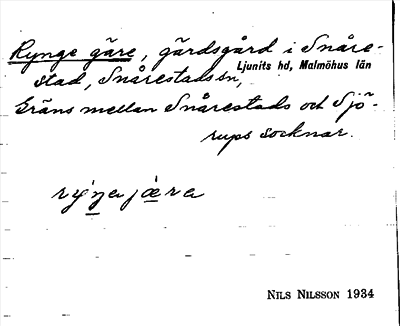 Rynge gäre, gärdsgård i Snåre-
stad, Snårestads sn,
Ljunits hd, Malmöhus län
Gräns mellan Snårestads och Sjö-
rups socknar.
NILS NILSSON 1934